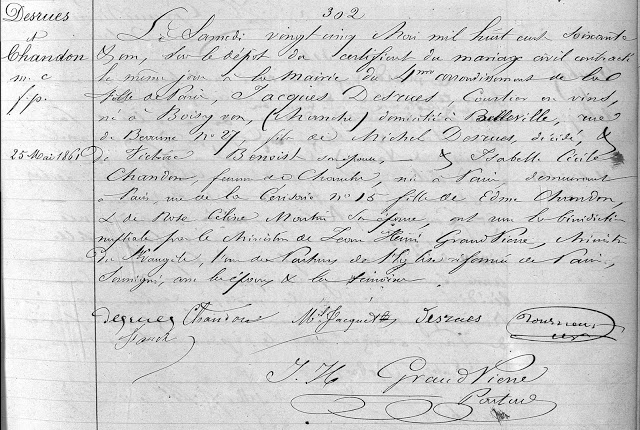 302
Desrues
et
Chandon
m. c
f. p.
25 Mai 1861
Le Samedi vingt cinq Mai mil huit cent soixante
Un, sur le dépôt du certificat du mariage civil contracté
le même jour à la Mairie du 4me arrondissement de la
Ville de Paris, Jacques Desrues, Courtier en vins,
né à Boisyvon, (Manche) domicilié à Belleville, rue
de N° 27, fils de Michel Desrues, décédé &
de Benoist son épouse, & Isabelle Cécile
Chandon, femme de Chambre, née à Paris demeurant
à Paris rue de la Cerisaie N° 15 fille de Edme Chandon,
& de Rose Céline Martin son épouse, ont reçu la bénédiction
nuptiale par le Ministère de Jean Henri Grand Pierre, Ministre
du St Evangile, l'un des Pasteurs de l'Eglise réformée de Paris,
Soussigné, avec les époux & les témoins.
desrues Chandon Jacques Desrues
J. H. Grand Pierre
Pasteur